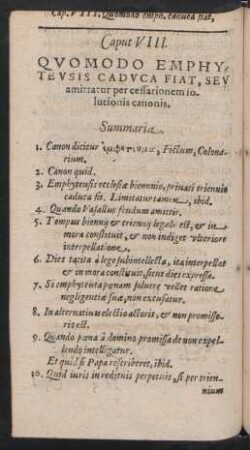 Cap. VIII. Quomodo empo. caduca fiat,
Caput VIII.
QVOMODO EMPHY-
TEVSIS CADVCA FIAT, SEV
amittatur per cessationem so-
lutionis canonis.
Summaria.
1. Canon dicitur Fictum, Colona-
rium.
2. Canon quid.
3. Emphyteusis ecclesiæ biennio, privati triennio
caduca fit. Limitatur tamen, ibid.
4. Quando Vasallus feudum amittit.
5. Tempus biennij & triennij legale est, & in
mora constituit, & non indiget vlteriore
interpellatione.
6. Dies tacita à lege subintellecta, ita interpellat
& in mora constituit, sicut dies expressa.
7. Si emphyteuta pœnam solvere vellet ratione
negligentiæ suæ, non excusatur.
8. In alternativis electio actoris, & non promisso-
ris est.
9. Quando pœna à domino promissa de non expel-
lendo intelligatur.
Et quid si Papa rescriberet, ibid.
10. Quid iuris in reditiis perpetuis, si per trien-
nium